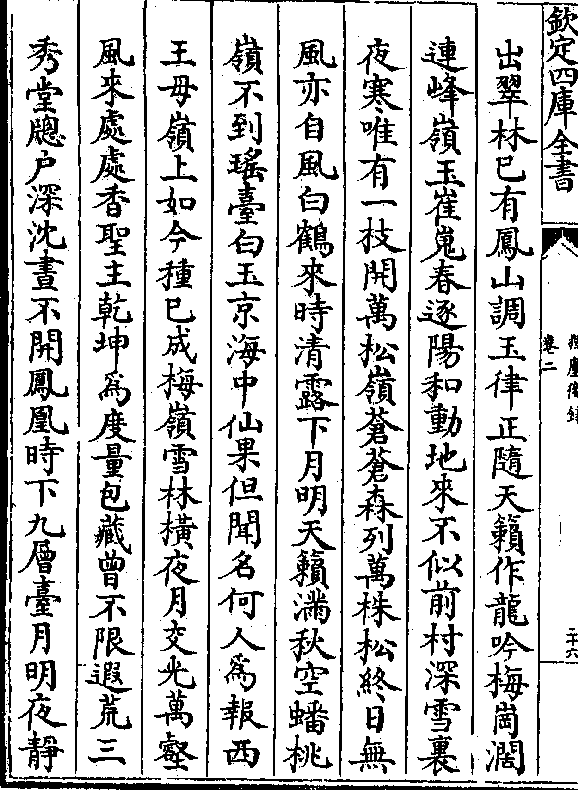 欽定四庫全書
揮麈後錄
卷二
二十六
出翠林已有鳳山調玉律正隨天籟作龍吟梅崗濶
連峰嶺玉崔嵬春逐陽和動地來不似前村深雪裏
夜寒唯有一枝開萬松嶺蒼蒼森列萬株松終日無
風亦自風白鶴來時清露下月明天籟滿秋空蟠桃
嶺不到瑤臺白玉京海中仙果但聞名何人為報西
王母嶺上如今種已成梅嶺雪林橫夜月交光萬壑
風來處處香聖主乾坤為度量包藏曾不限遐荒三
秀堂牕户深沈晝不開鳳凰時下九層臺月明夜靜